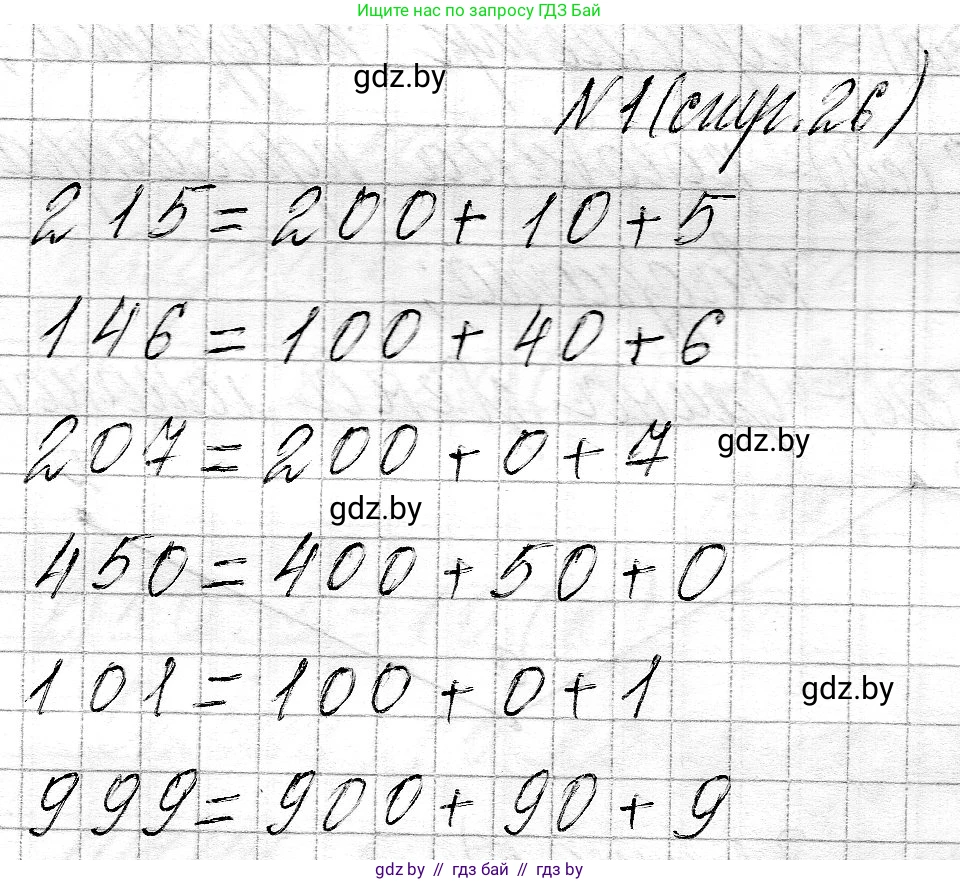 Ищите нас по запросу ГДЗ Бай
gdz.by
N1(стр. 26)
215 = 200 + 10 + 5
146 = 100 + 40 + 6
207 = 200 + 0 + 7
gdz.by
gdz.by
450 = 400 + 50 + 0
101 = 100 + 0 + 1
gdz.by
999 = 900 + 90 + 9
gdz.by // гдз бай // gdz.by